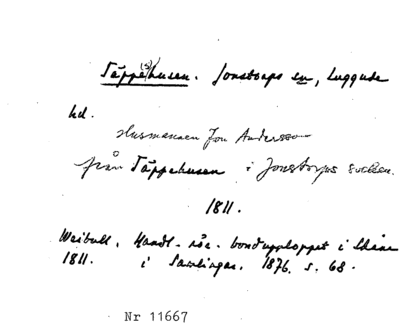 Täppe(s)husen. Jonstorps sn, Luggude
hd.
Husmannen Jon Andersson
från Täppehusen i Jonstorps socken.
1811.
Weibull, Handl. rör. bondupploppet i Skåne
1811. i Samlingar. 1876. s. 68.
Nr 11667